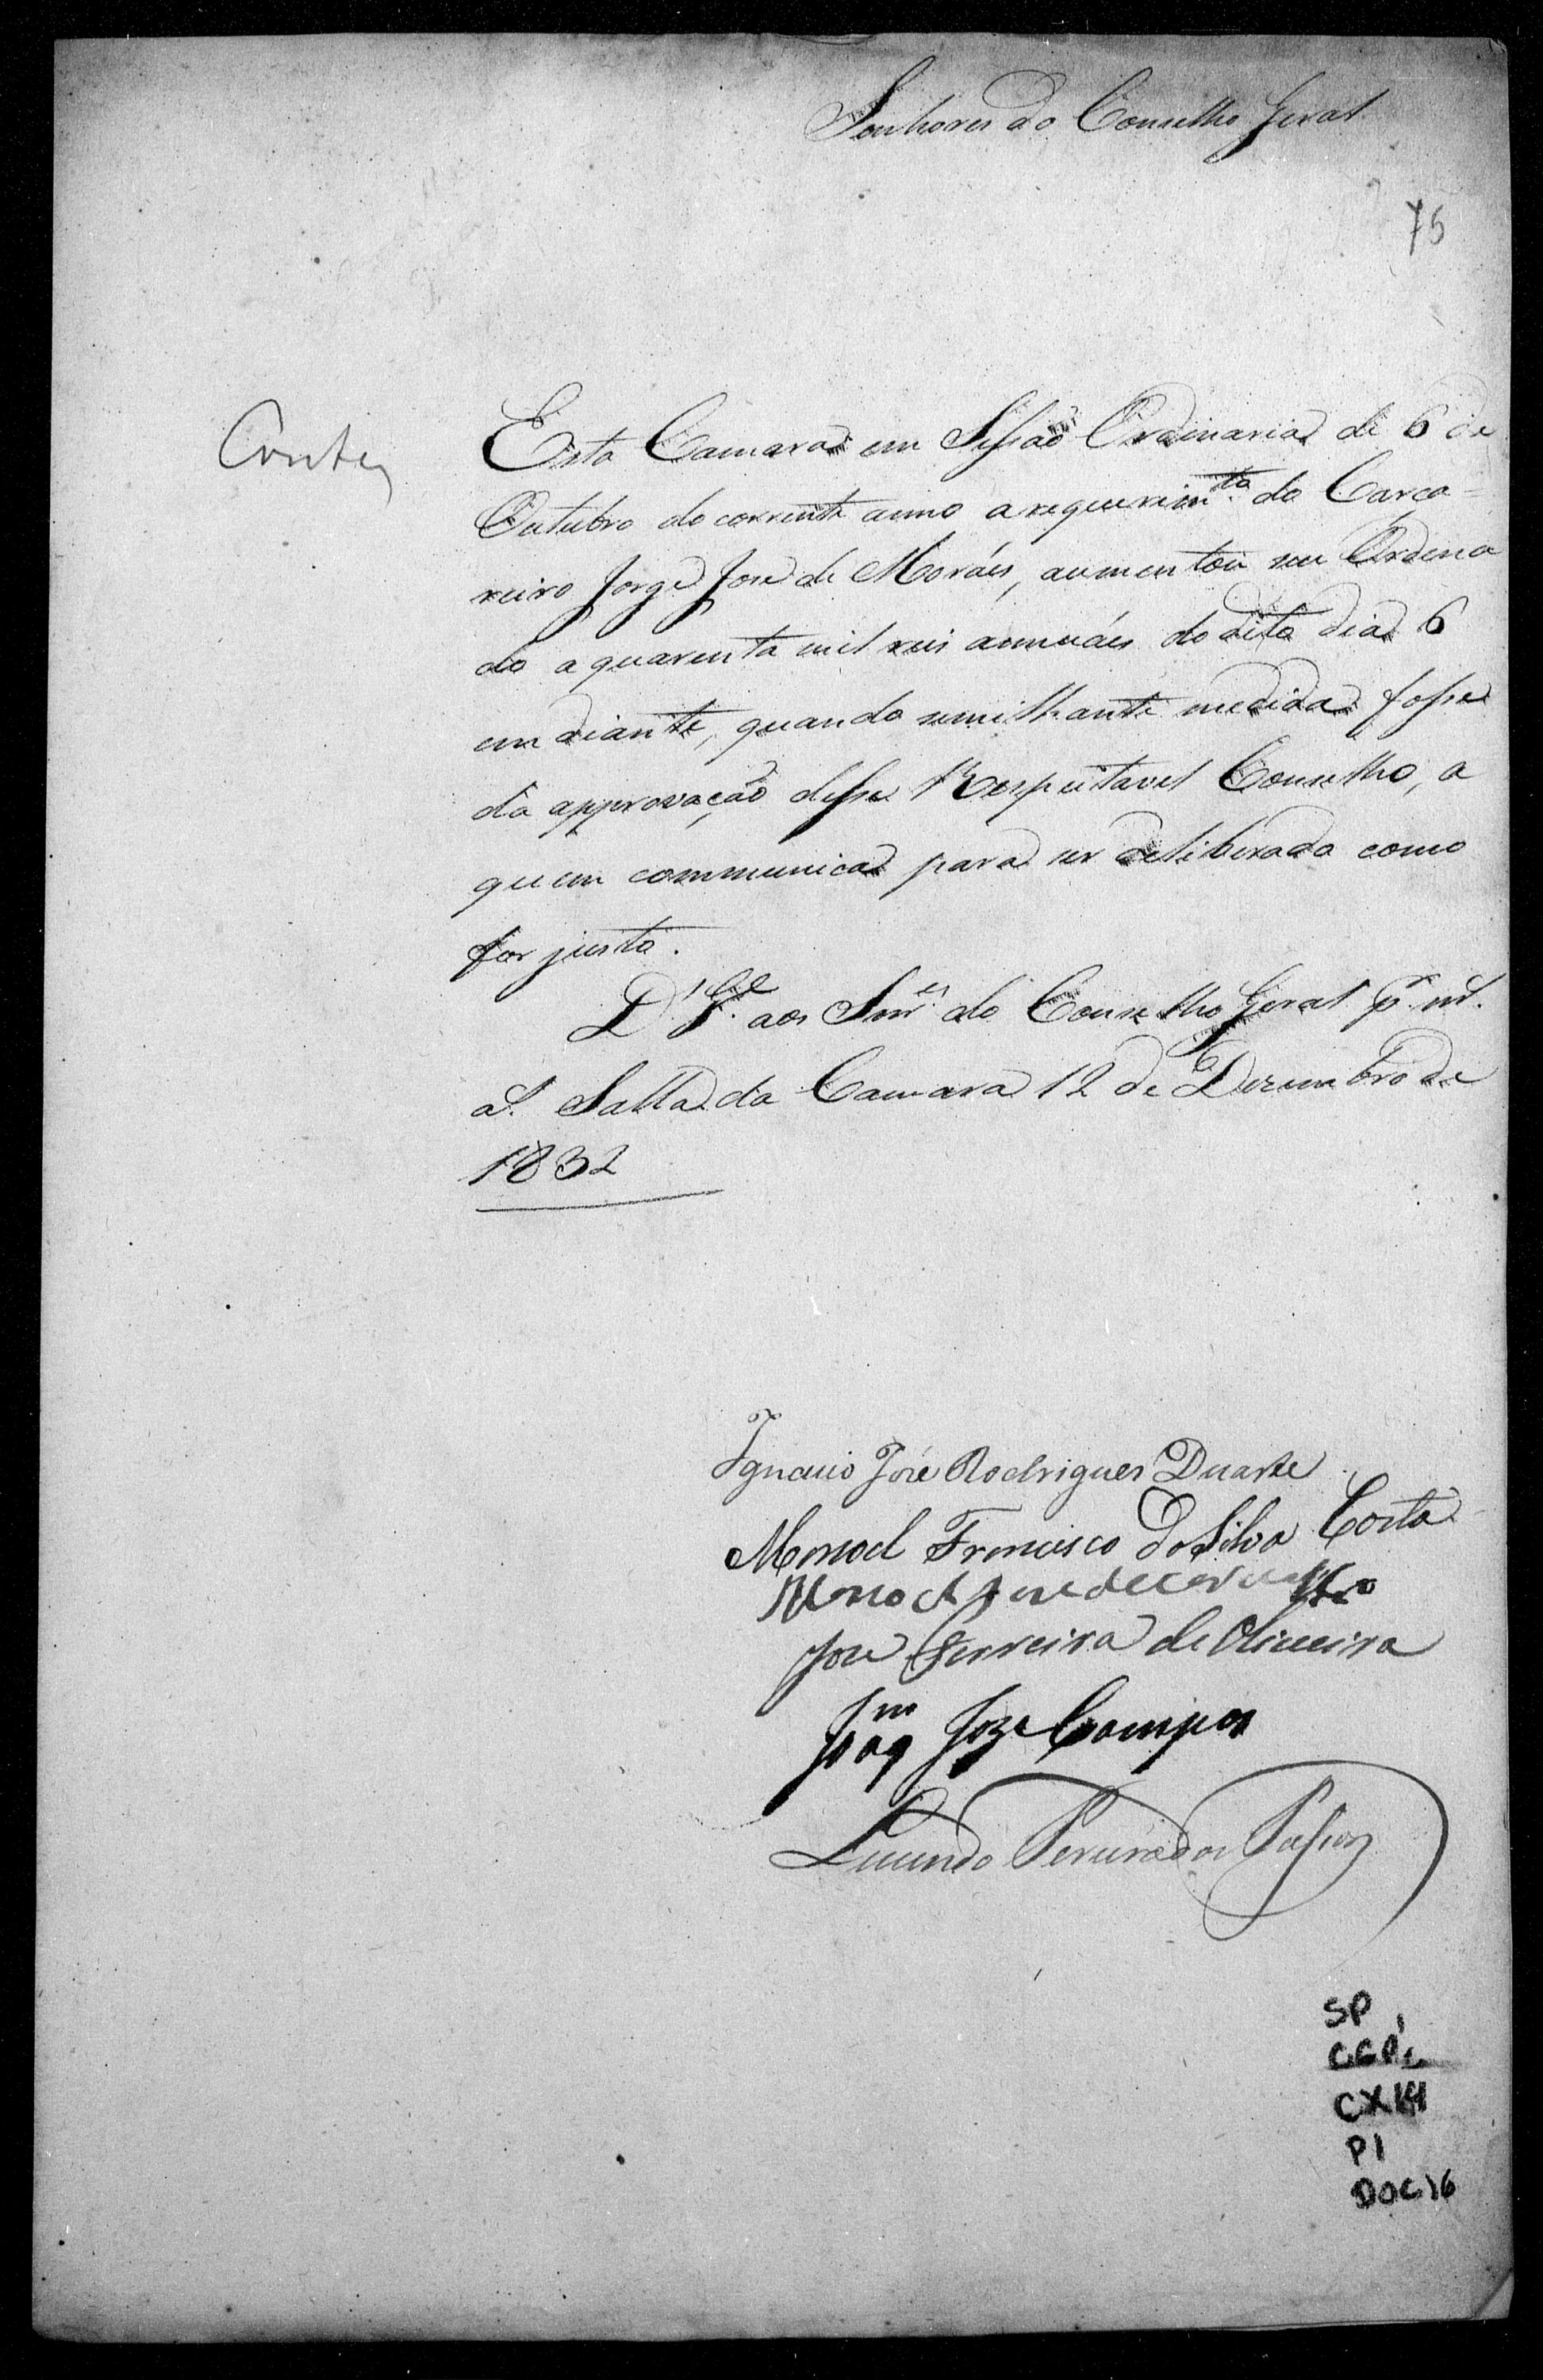 Senhores do Conselho Geral
75
Contas
Esta Camara em Sessaõ Ordinaria de 6 de
Outubro do corrente anno a requerimto. do Carce=
reiro Jorge Jose de Moráes, aumentou seu Ordena
do a quarenta mil reis annuáes do dito dia 6
em diante, quando semilhante medida fosse
da approvaçaõ desse Respeitavel Conselho, a
quem communica para ser deliberado como
for justo.
D.' G.e aos Snres. do Conselho Geral p.r m.
a.s Salla da Camara 12 de Dezembro de
1832
Ignacio José Rodrigues Duarte
Manoel Francisco da Silva Costa
Manoel Jose de Carvalho
Joze Ferreira de Oliveira
Joaqm Joze Campos
Passos
SP
CGP1
CX14
P1
DOC16